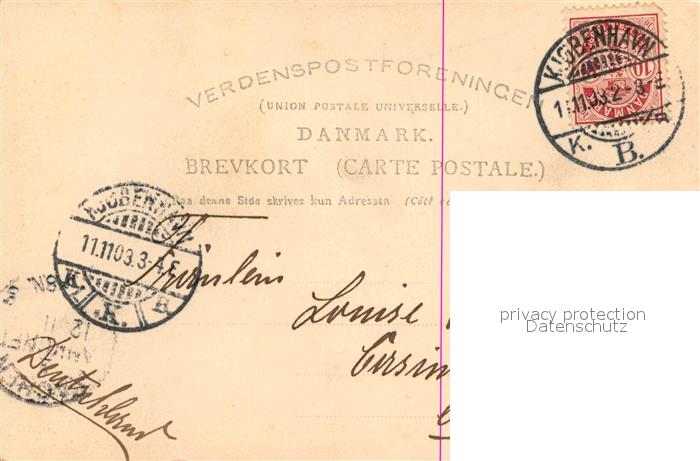 VERDENSPOSTFORENINGEN
(UNION POSTALE UNIVERSELLE.)
DANMARK.
BREVKORT (CARTE POSTALE.)
Paa denne Side skrives kun Adressen (Côté
KJØBENHAVN
11.11.03.2-3 E
K. B.
10 10
DANMARK
KJØBENHAVN
11.11.03.3-4 E
K. K. B
Fräulein
Louise
Deutschland
12 11
privacy protection
Datenschutz